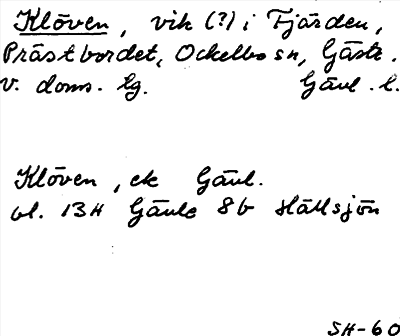 Klöven, vik (?) i Fjärden,
Prästbordet, Ockelbo sn, Gästr.
v. doms. lg. Gävl. l.
Klöven, ek Gävl.
bl. 13H Gävle 8b Hällsjön
SH-60